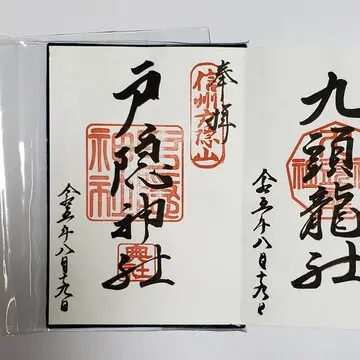 奉拝
信州戸隠山
戸隠神社
戸隠神社
奥社
令五年八月十九日
九頭龍社
令五年八月十九日